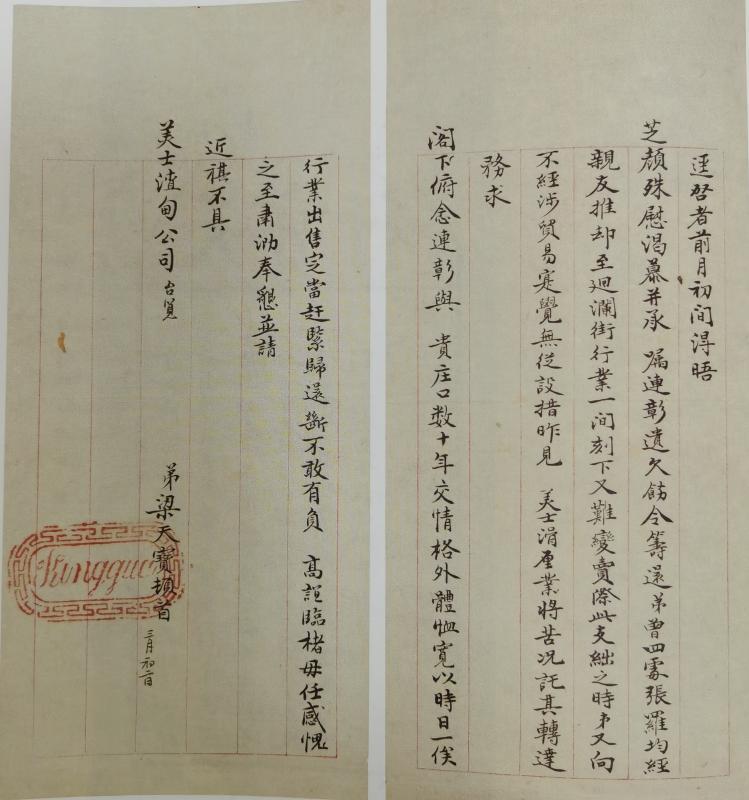 逕啓者前月初間淂晤
芝顔殊慰渴慕并承 囑連彰遺欠餙令籌還弟曾四處張羅均經
親友推却至迴瀾街行業一间刻下又難變賣際此支絀之時弟又向
不經涉貿易寔覺無從設措昨見 美士涓厘業將苦况託其轉達
務求
閣下俯念連彰與 貴庄口数十年交情格外體恤寬以時日一俟
行業出售定當赶緊歸還斷不敢有負 高誼臨楮毋任感愧
之至肅泐奉懇並請
近祺不具
美士渣甸公司台覧
弟梁天寶頓首
三月初二日
Kingqua